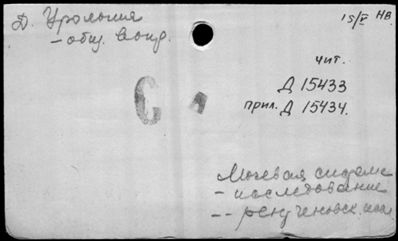 Д. Урология
- общ. вопр.
15/V НВ
чит.
Д 15433
прил. Д 15434.
С
Мочевая система
- исследование
-- рентгеновск. иссл